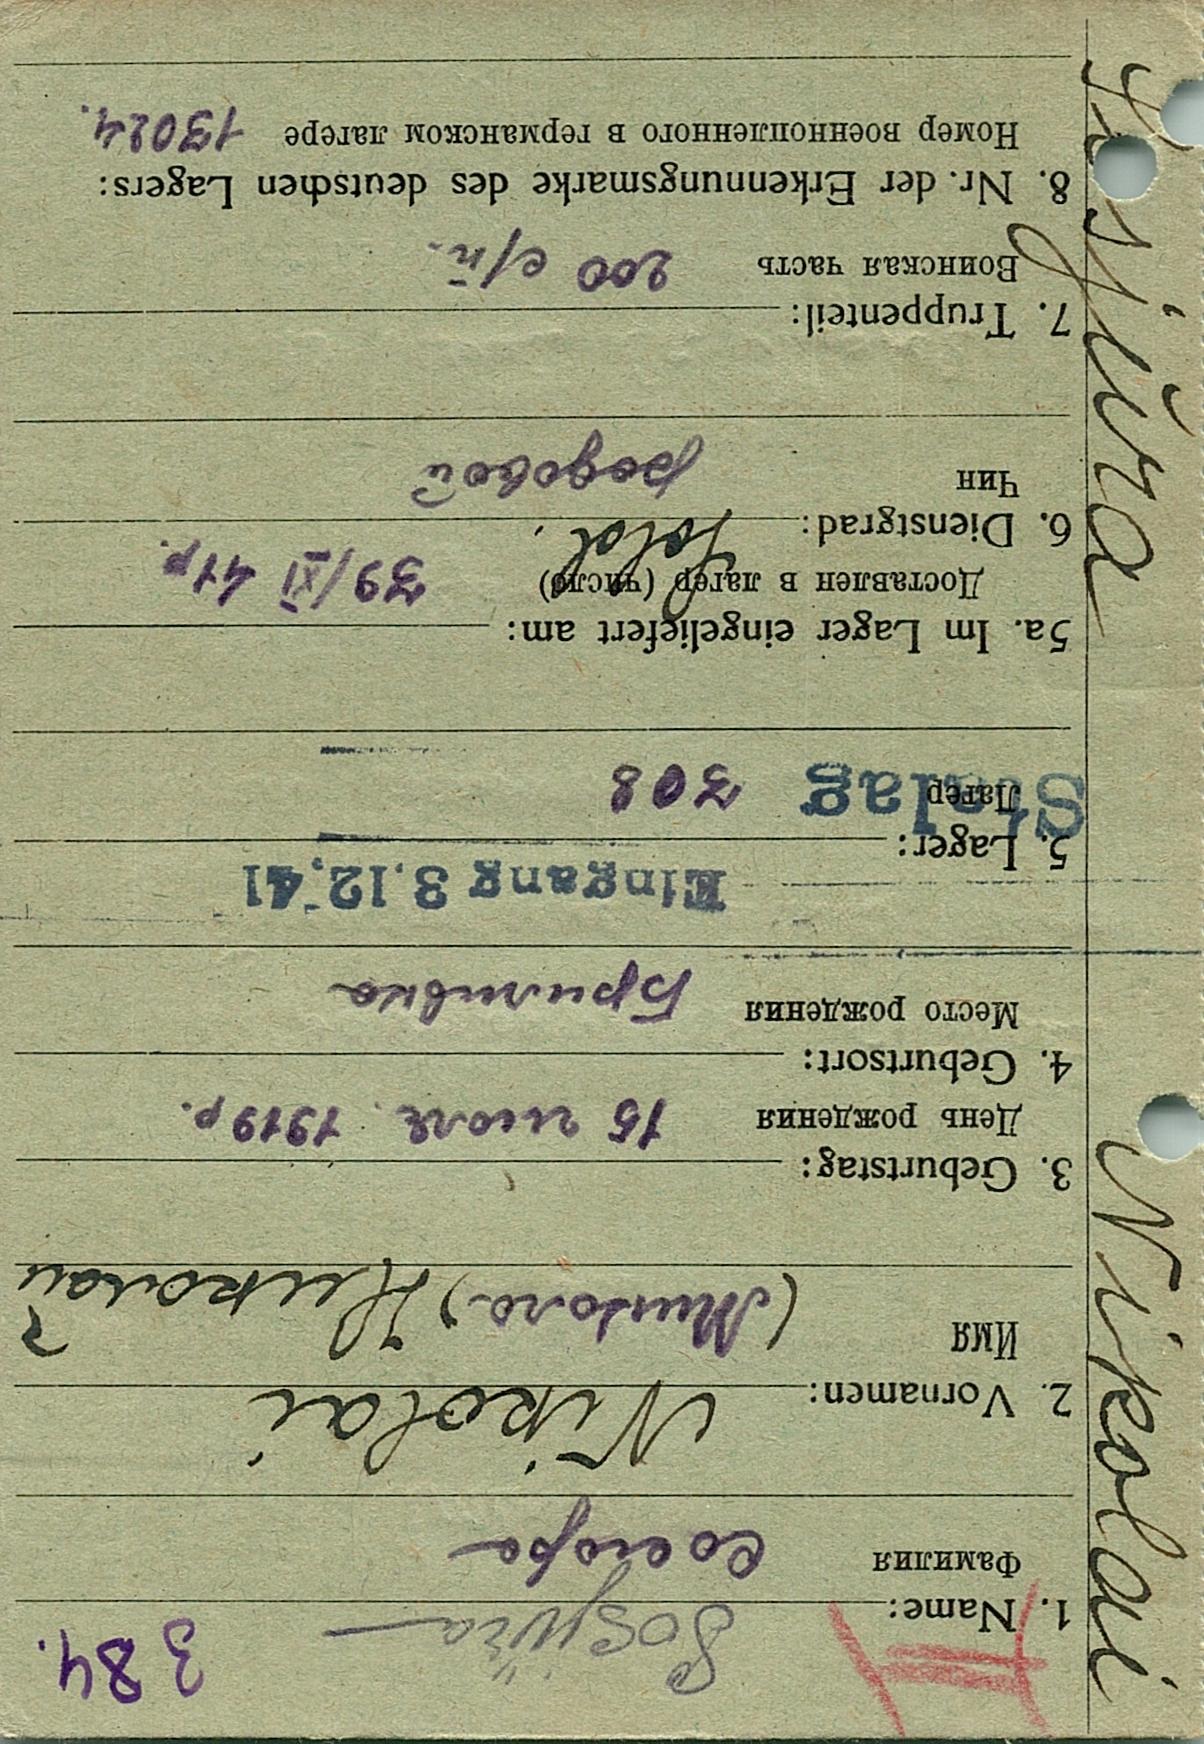 384.
II
1. Name: Sosjŭra
Фамилия Сосюра
2. Vornamen: Nikolai
Имя (Микола) Николай
3. Geburtstag:
День рождения 15 июля 1919 р.
4. Geburtsort:
Место рождения Бриливка
Eingang 3.12.41
5. Lager:
Stalag
Лагер 308
5a. Im Lager eingeliefert am:
Доставлен в лагер (число) 39/XI 41р.
6. Dienstgrad: Sold.
Чин рядовой
7. Truppenteil:
Воинская часть 200 с/п.
8. Nr. der Erkennungsmarke des deutschen Lagers:
Номер военнопленного в германском лагере 13024.
Sosjŭra Nikolai